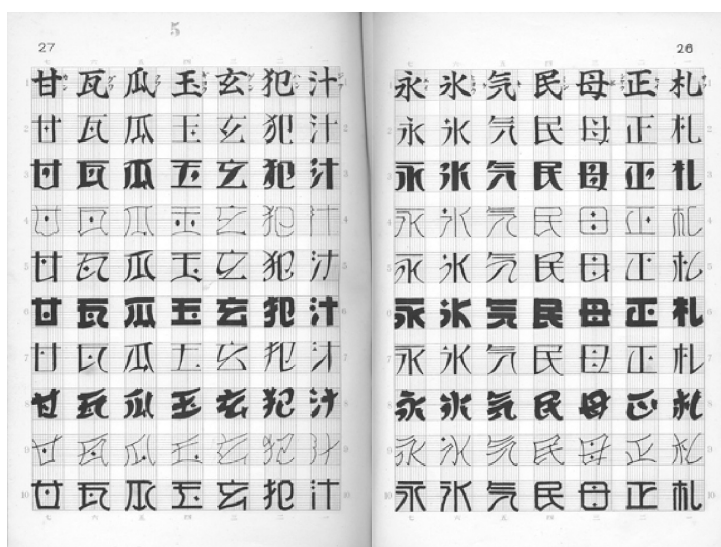 5
27
甘瓦瓜玉玄犯汁
甘瓦瓜玉玄犯汁
甘瓦瓜玉玄犯汁
甘瓦瓜玉玄犯汁
甘瓦瓜玉玄犯汁
甘瓦瓜玉玄犯汁
甘瓦瓜玉玄犯汁
甘瓦瓜玉玄犯汁
甘瓦瓜玉玄犯汁
甘瓦瓜玉玄犯汁
26
永氷気民母正札
永氷気民母正札
永氷気民母正札
永氷気民母正札
永氷気民母正札
永氷気民母正札
永氷気民母正札
永氷気民母正札
永氷気民母正札
永氷気民母正札